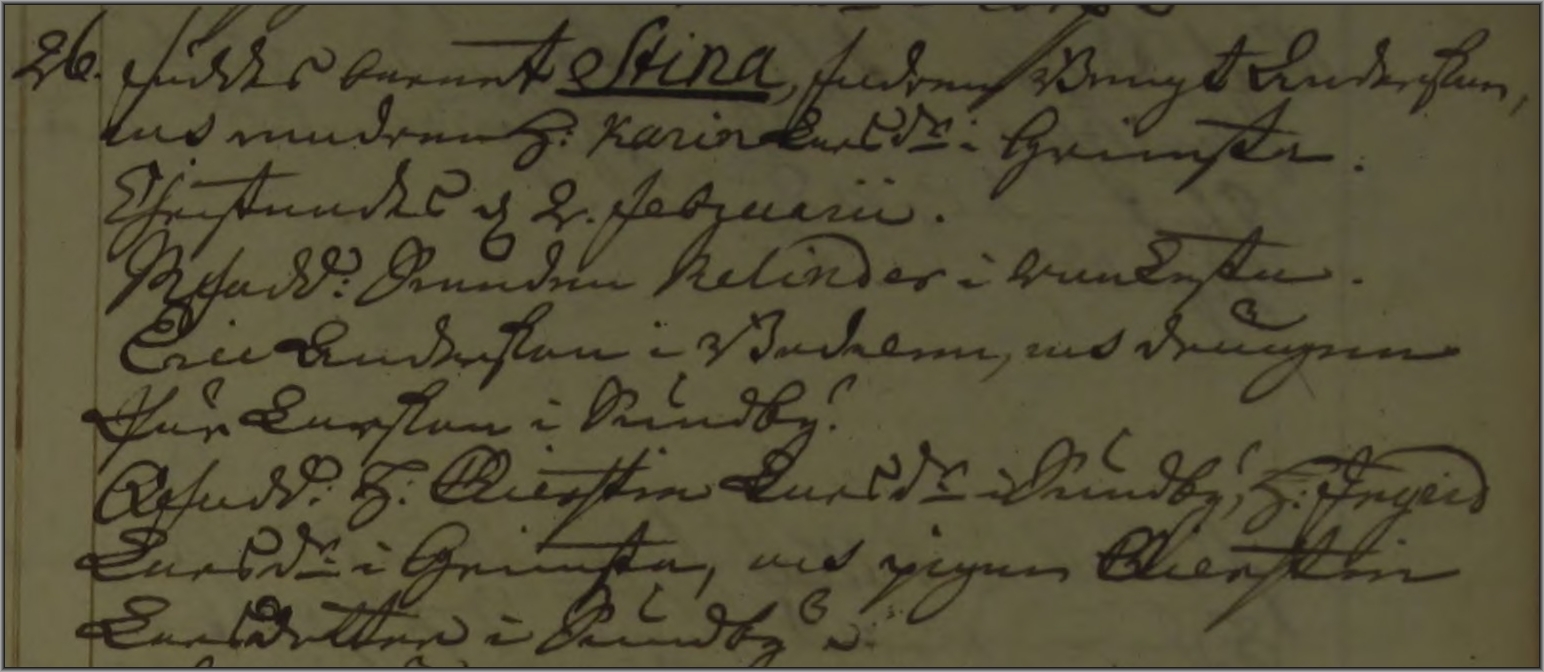 26. föddes barnet Stina, fadren Bengt Andersson,
och modren H: Karin Larsdr i Grimsta.
Christnades d 2. februarii.
Mfadd: Runden Relinder i
Eric Andersson i Bodarne, och drängen
Pär Larsson i Sundby.
Qfadd: H: Chierstin Larsdr i Sundby, H: Ingrid
Larsdr i Grimsta, och pigan Chierstin
Larsdotter i Sundby